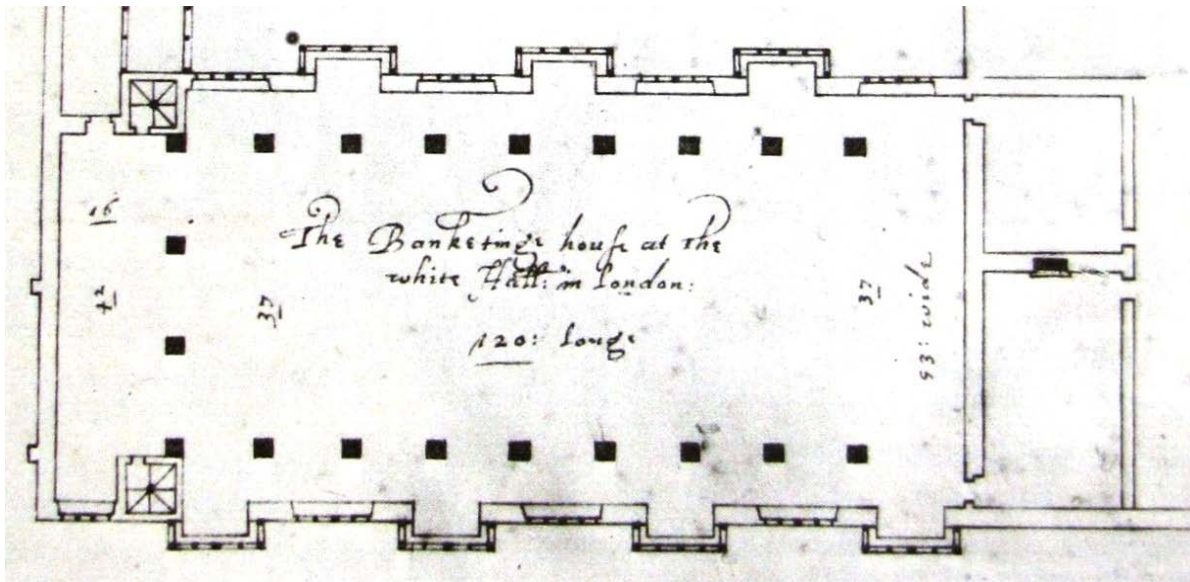 16
The Banketinge house at the
white Hall: in london:
42
37
37
120: longe
53: wide